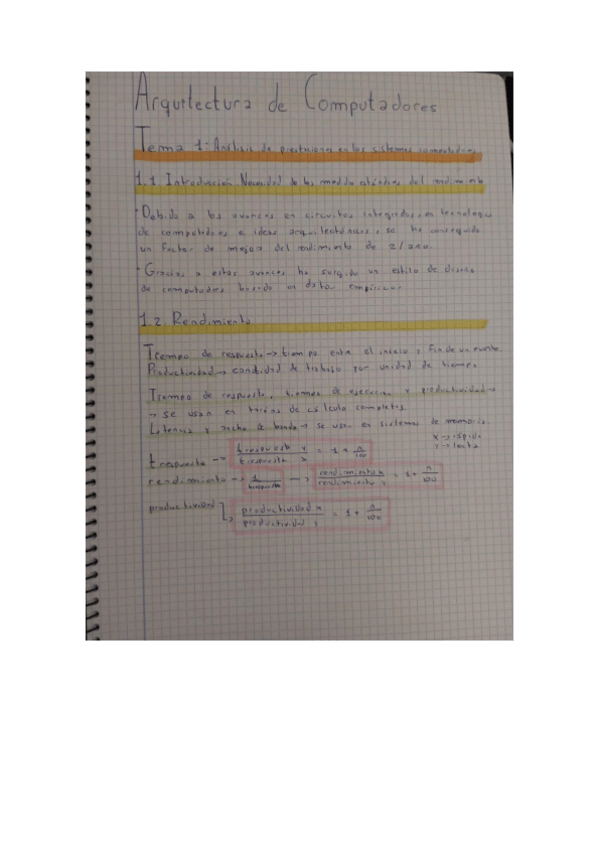 Arquitectura de Computadores
Tema 1: Análisis de prestaciones en los sistemas computadores
1.1. Introducción. Necesidad de las medidas estándar del rendimiento
· Debido a los avances en circuitos integrados, en tecnología
de computadores e ideas arquitectónicas, se ha conseguido
un factor de mejora del rendimiento de 2/año.
· Gracias a estos avances ha surgido un estilo de diseño
de computadores basado en datos empíricos.
1.2. Rendimiento
Tiempo de respuesta → tiempo entre el inicio y fin de un
Productividad → cantidad de trabajo por unidad de tiempo.
Tiempo de respuesta, tiempo de ejecución y productividad →
→ se usan en tareas de cálculo completas.
Latencia y ancho de banda → se usa en sistemas de memoria.
X → rápida
Y → lenta
t respuesta → t respuesta Y / t respuesta X = 1 + n/100
rendimiento → 1 / t respuesta → rendimiento X / rendimiento Y = 1 + n/100
productividad ↳ productividad X / productividad Y = 1 + n/100